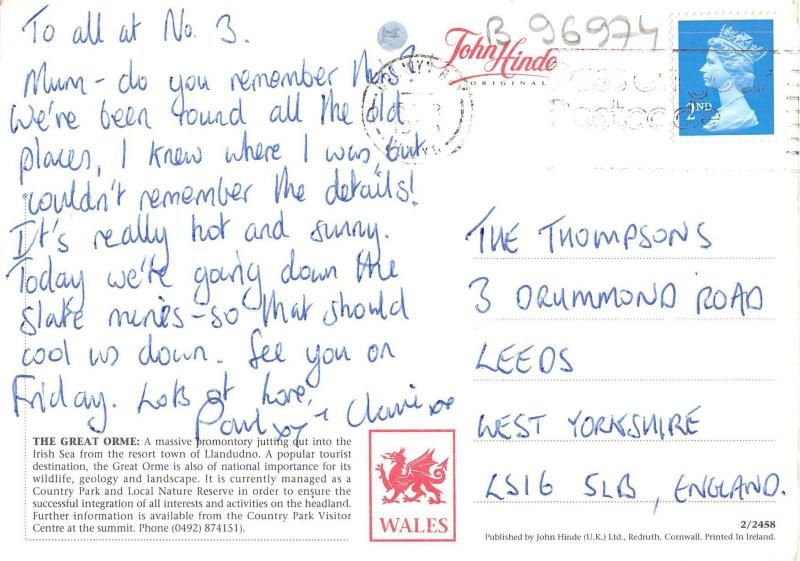 To all at No. 3.
Mum - do you remember this?
We've been round all the old
places, I knew where I was, but
couldn't remember the details!
It's really hot and sunny.
Today we're going down the
slate mines - so that should
cool us down. See you on
Friday. Lots of Love,
Paul xx +
THE GREAT ORME: A massive promontory jutting out into the
Irish Sea from the resort town of Llandudno. A popular tourist
destination, the Great Orme is also of national importance for its
wildlife, geology and landscape. It is currently managed as a
Country Park and Local Nature Reserve in order to ensure the
successful integration of all interests and activities on the headland.
Further information is available from the Country Park Visitor
Centre at the summit. Phone (0492) 874151).
WALES
B 96974
John Hinde
ORIGINAL
2ND
THE THOMPSONS
3 DRUMMOND ROAD
LEEDS
WEST YORKSHIRE
LS16 5LB, ENGLAND.
2/2458
Published by John Hinde (U.K.) Ltd., Redruth, Cornwall. Printed In Ireland.